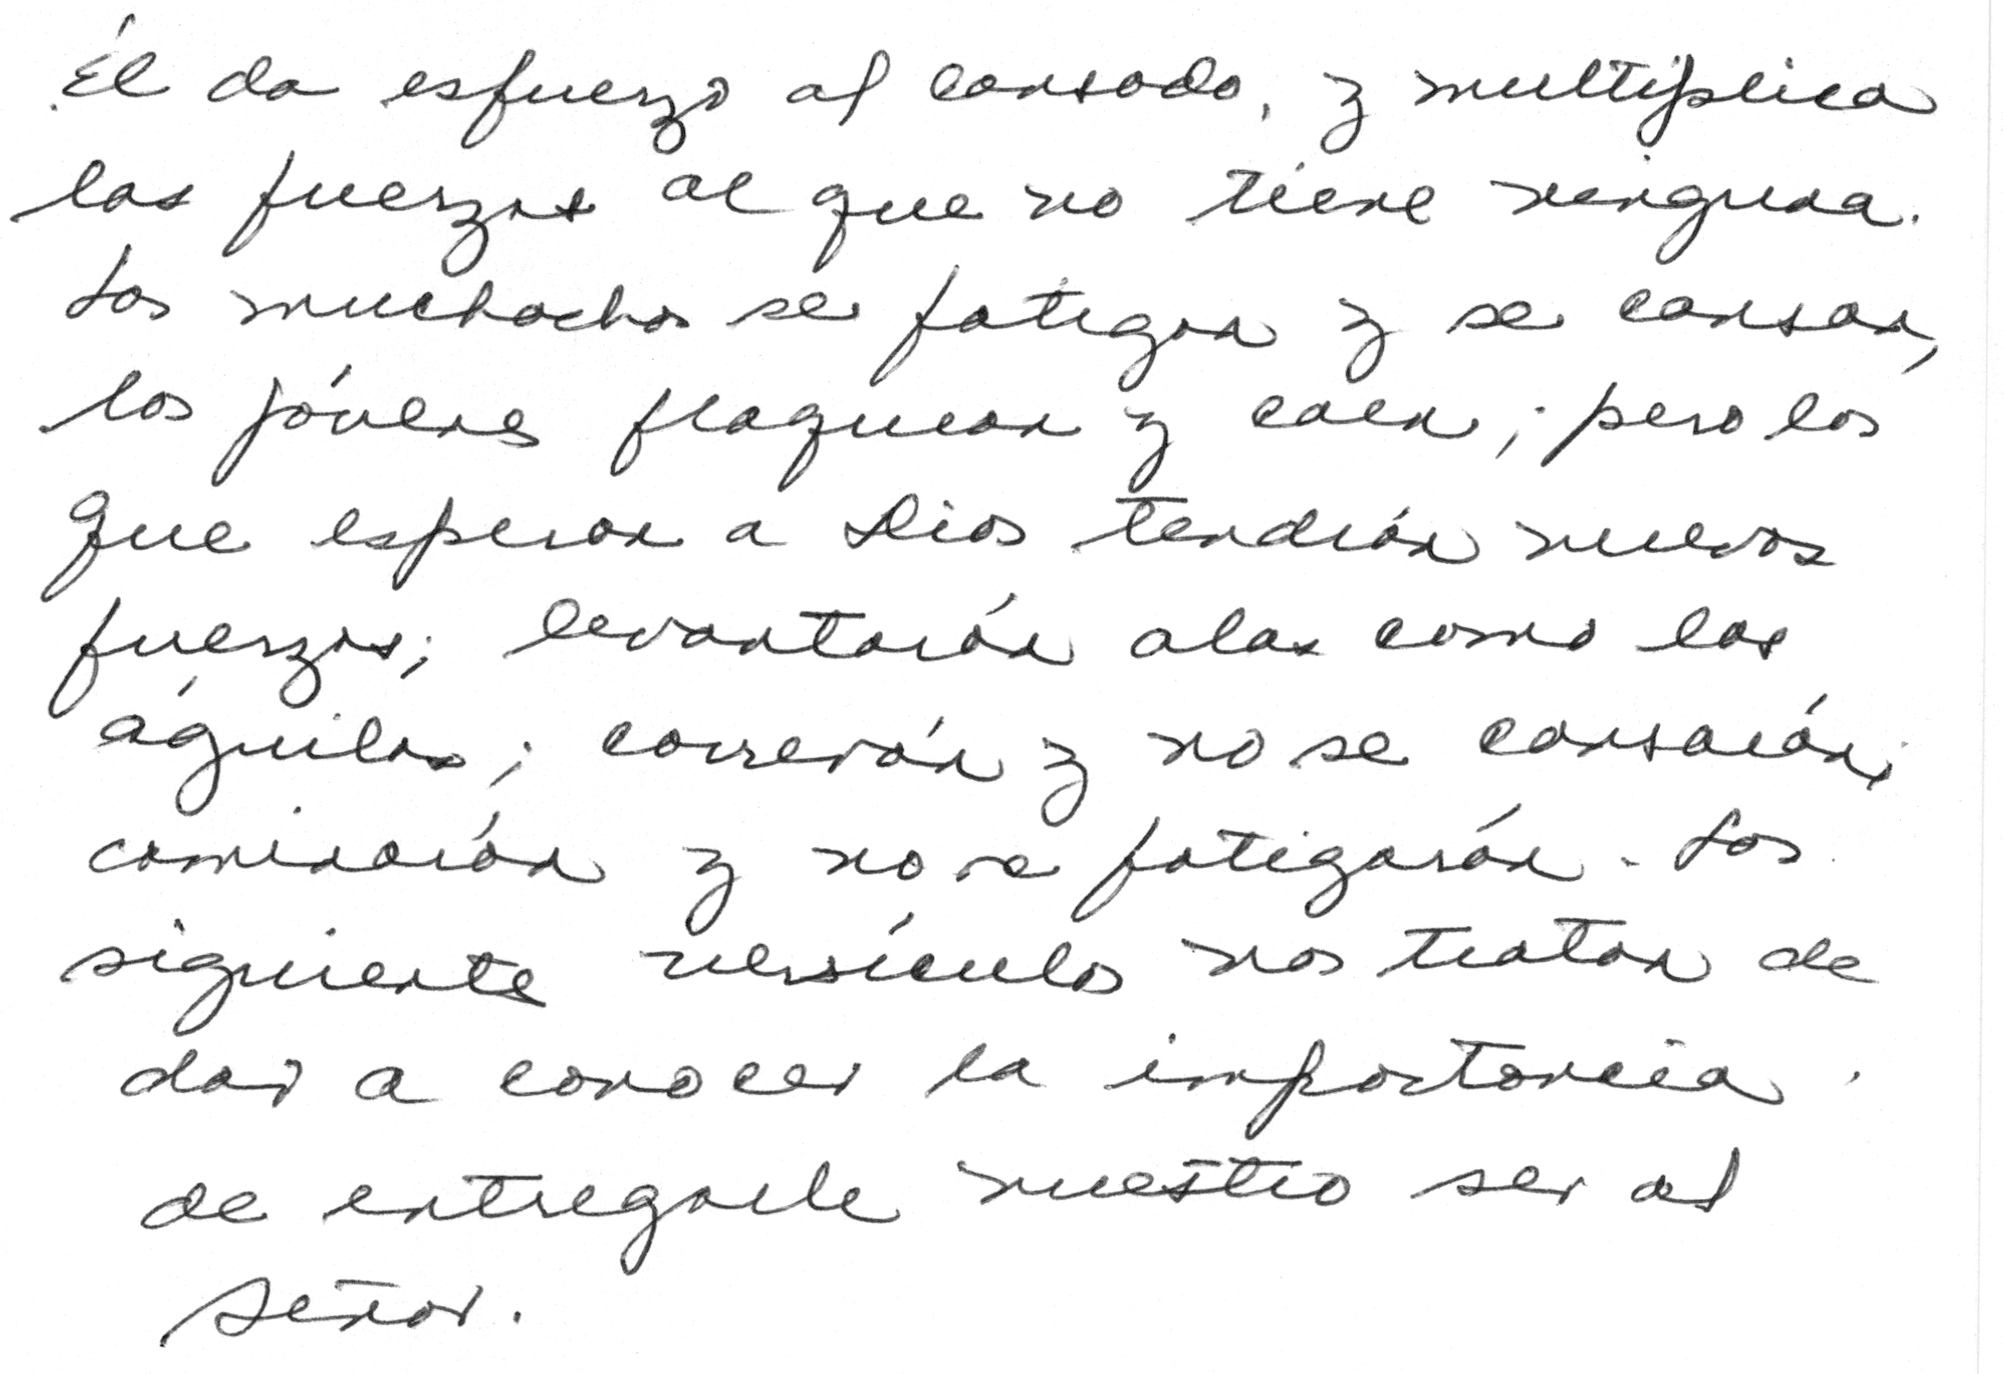 Él da esfuerzo al cansado, y multiplica
las fuerzas al que no tiene ninguna.
Los muchachos se fatigan y se cansan,
los jóvenes flaquean y caen; pero los
que esperan a Dios tendrán nuevas
fuerzas; levantarán alas como las
águilas; correrán y no se cansarán;
caminarán y no se fatigarán. Los
siguiente versículos nos tratan de
dar a conocer la importancia
de entregarle nuestro ser al
Señor.